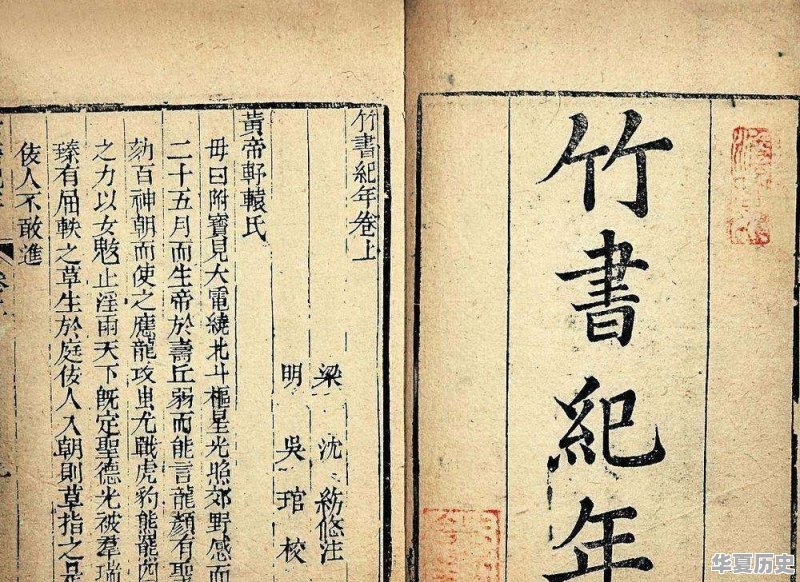 竹書紀年
竹書紀年卷上
梁 沈 注
明 吳 琯 校
黃帝軒轅氏
母曰附寶見大電繞北斗樞星光照郊野感而
二十五月而生帝於壽丘弱而能言龍顏有聖
劾百神朝而使之應龍攻蚩尤戰虎豹熊羆四
之力以女魃止淫雨天下既定聖德光被羣瑞
臻有屈軼之草生於庭佞人入朝則草指之是
佞人不敢進
华夏历史